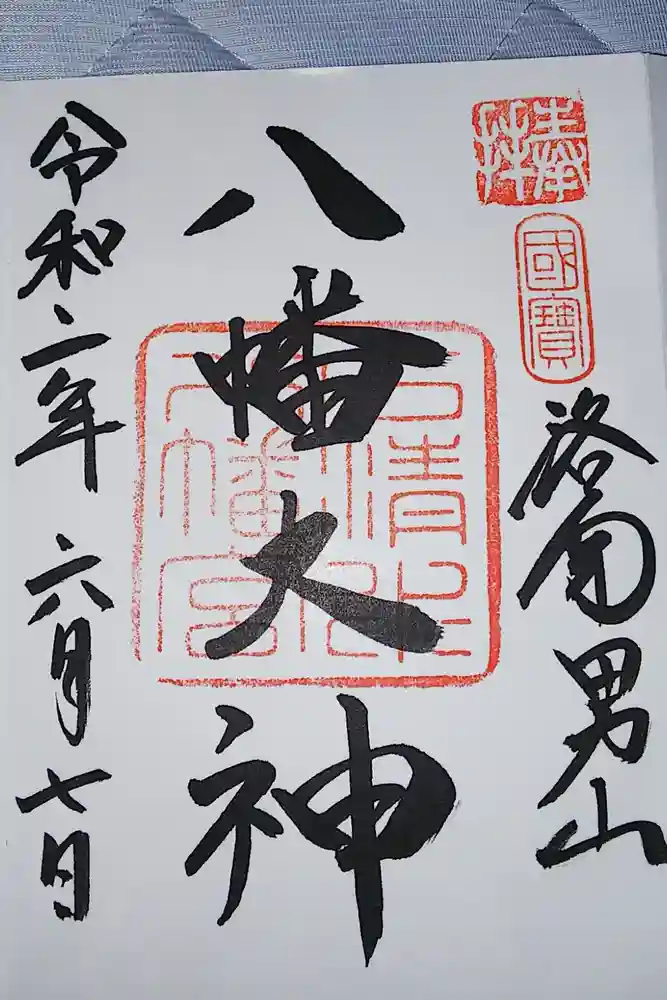 奉拝
國寶
洛南男山
八幡大神
石清水八幡宮
令和二年六月七日